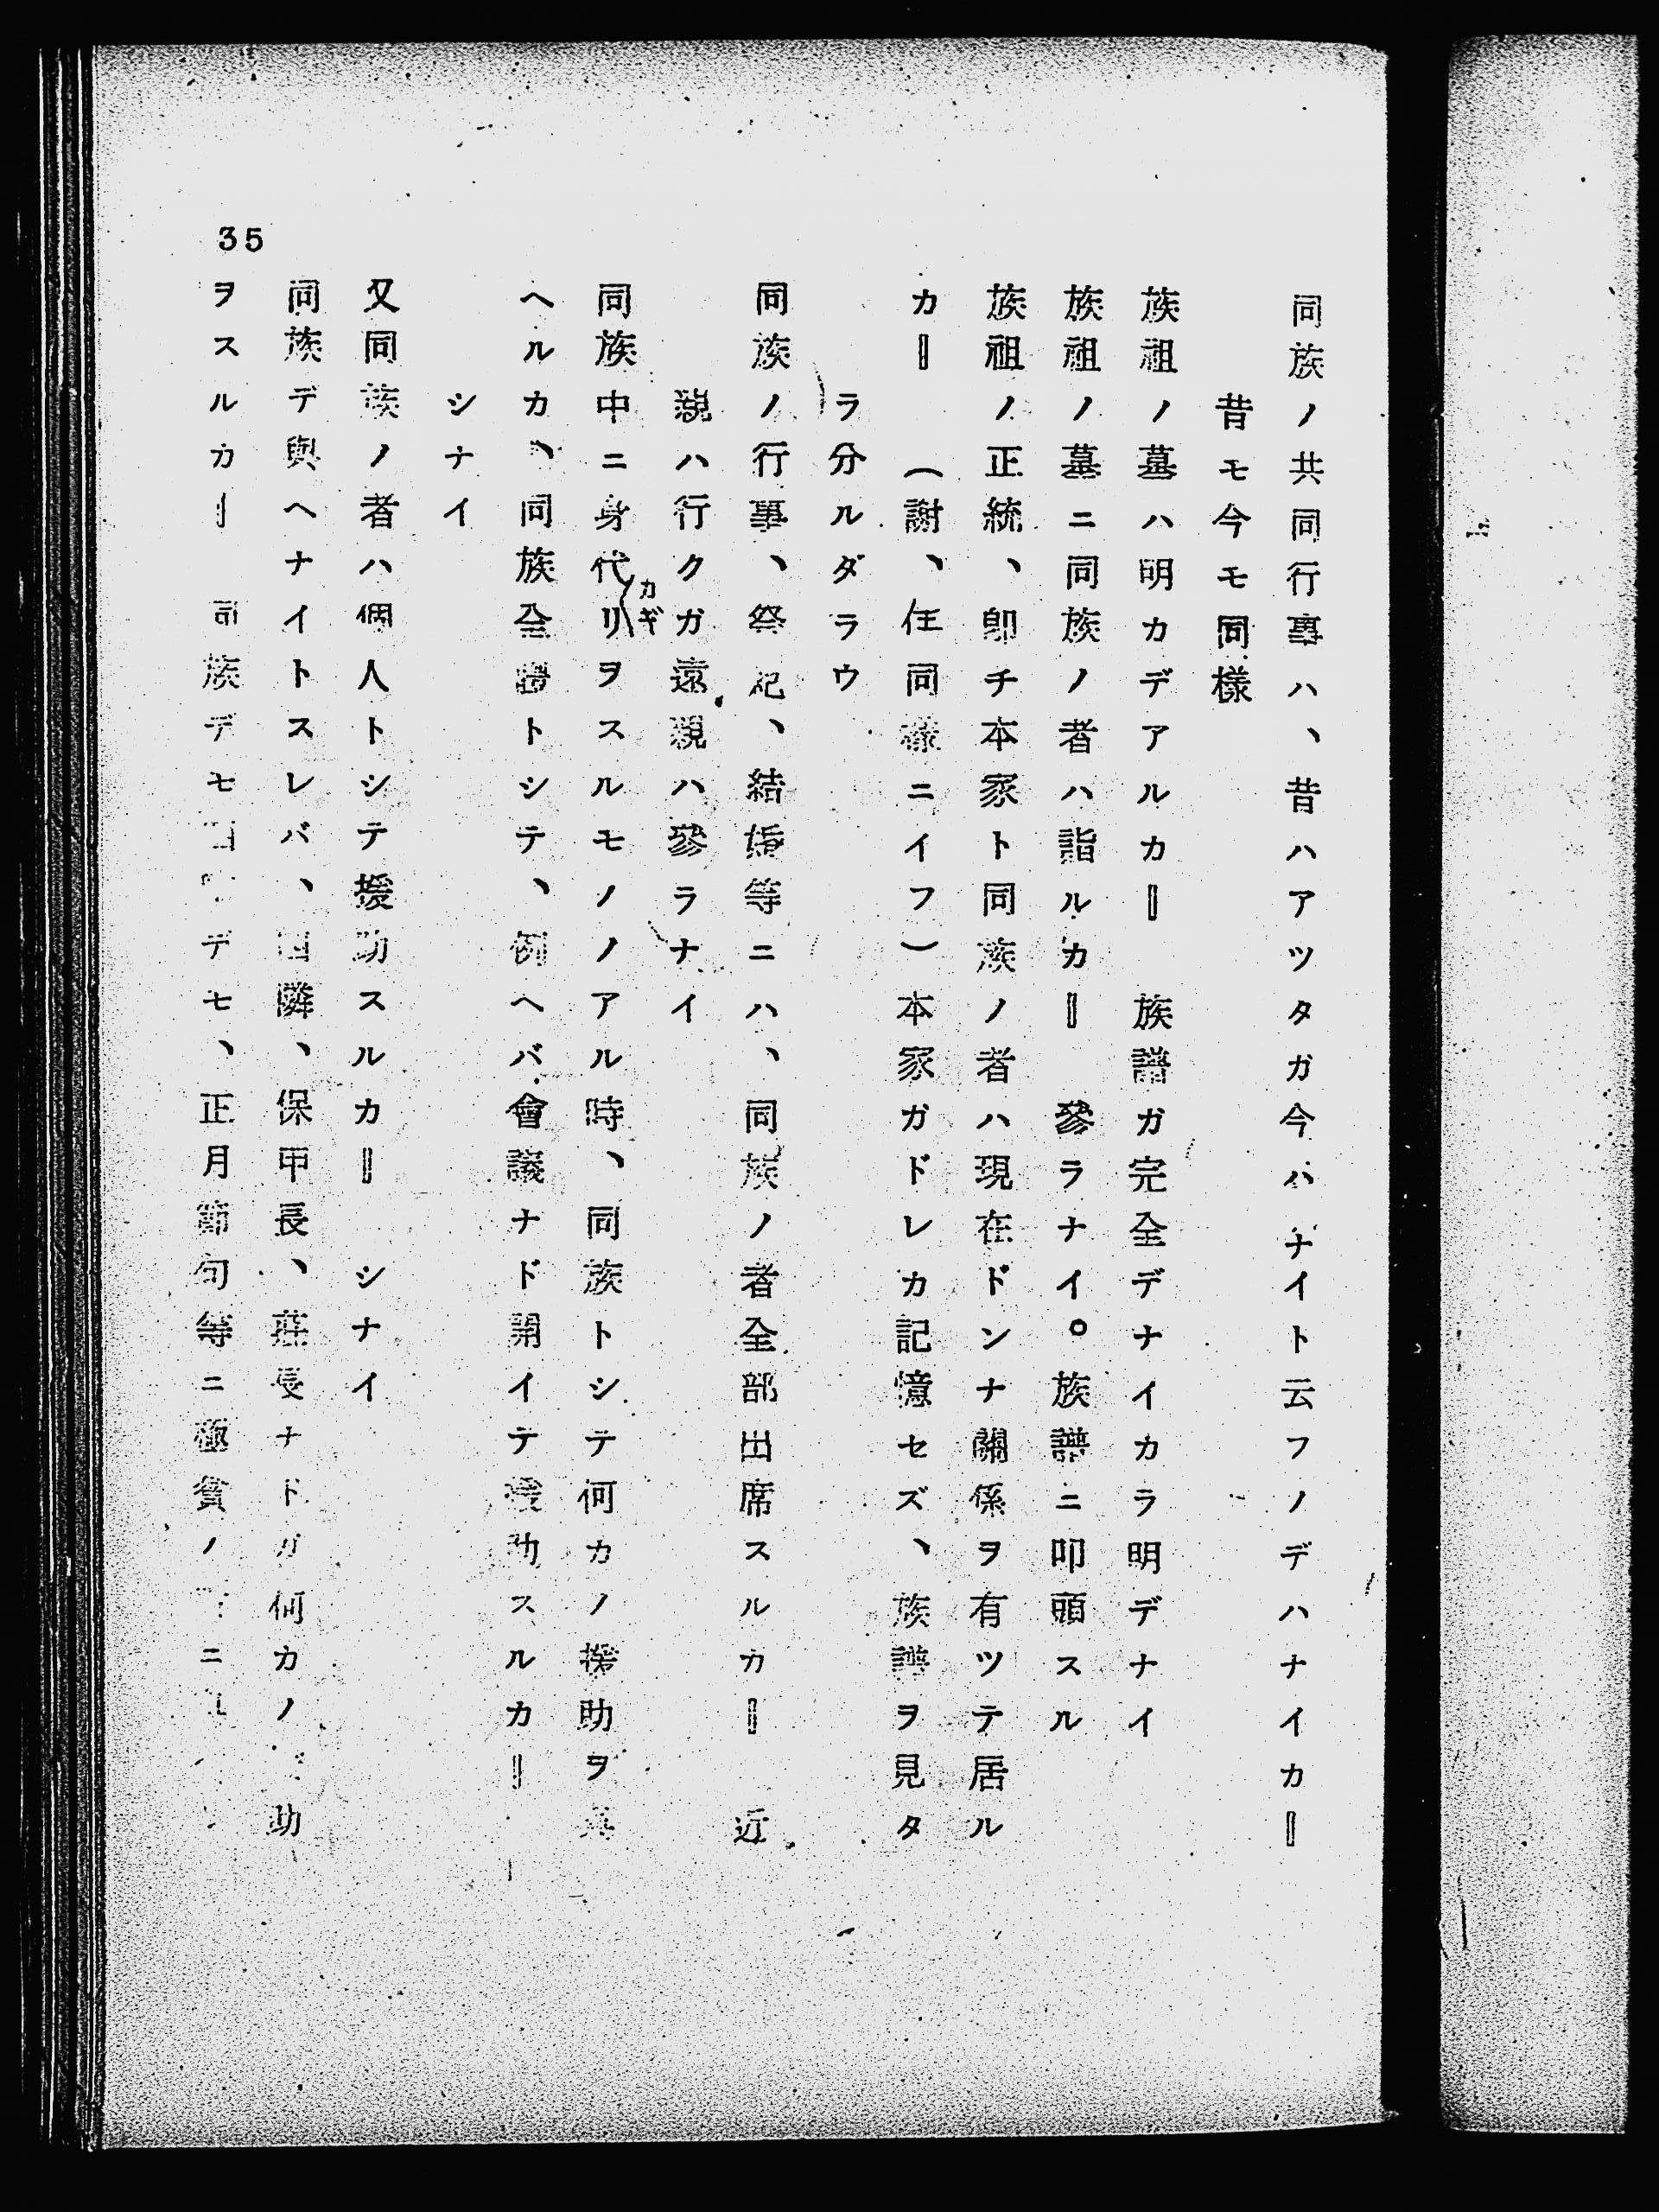 同族ノ共同行事ハ、昔ハアツタガ今ハナイト云フノデハナイカ＝
昔モ今モ同様
族祖ノ墓ハ明カデアルカ＝　族譜ガ完全デナイカラ明デナイ
族祖ノ墓ニ同族ノ者ハ詣ルカ＝　參ラナイ。族譜ニ叩頭スル
族祖ノ正統、卽チ本家ト同族ノ者ハ現在ドンナ關係ヲ有ツテ居ル
カ＝　（謝、任同樣ニイフ）本家ガドレカ記憶セズ、族譜ヲ見タ
ラ分ルダラウ
同族ノ行事、祭祀、結婚等ニハ、同族ノ者全部出席スルカ＝　近
親ハ行クガ遠親ハ參ラナイ
同族中ニ身代リヲスルモノノアル時、同族トシテ何カノ援助ヲ
カギ
ヘルカ、同族全體トシテ、例ヘバ會議ナド開イテ援助スルカ＝
シナイ
又同族ノ者ハ個人トシテ援助スルカ＝　シナイ
同族デ與ヘナイトスレバ、四隣、保甲長、莊長ナドガ何カノ助
ヲスルカ＝　同族デモデモ、正月節句等ニ極貧ノニ
35